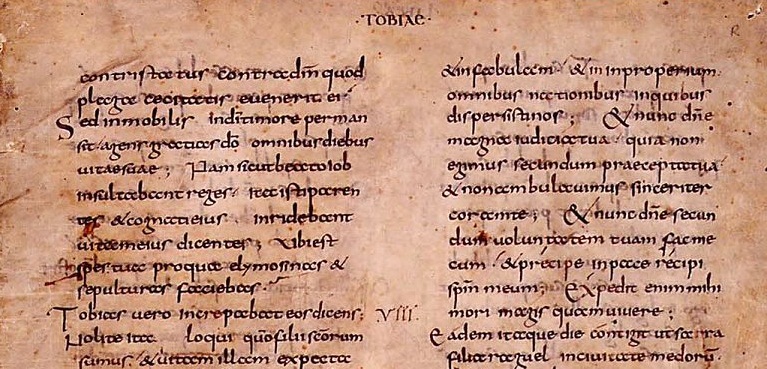 ·TOBIAE·
contristatus contra dm̄ quod
plaga cecitatis evenerit ei
Sed inmobilis in dī timore perman
sit agens gratias dō omnibus diebus
vitae suae; Nam sicut beato iob
insultabant reges· ita isti paren
tes & cognati eius inridebant
vitam eius dicentes; Ubi est
spes tua pro qua elymosinas &
sepulturas faciebas·
Tobias vero increpabat eos dicens;
Nolite ita loqui quō filii scōrum
sumus· & vitam illam expecta
& in fabulam· & in inproperium·
omnibus nationibus in quibus
dispersisti nos; & nunc dn̄e
magna iudicia tua· quia non
egimus secundum praecepta tua·
& non ambulavimus sinceriter
coram te; & nunc dn̄e secun
dum voluntatem tuam fac me
cum· & precipe in pace recipi
spm̄ meum; Expedit enim mihi
mori magis quam vivere;
VIII. Eadem itaque die contigit ut sarra
filia raguel in civitate medorū·